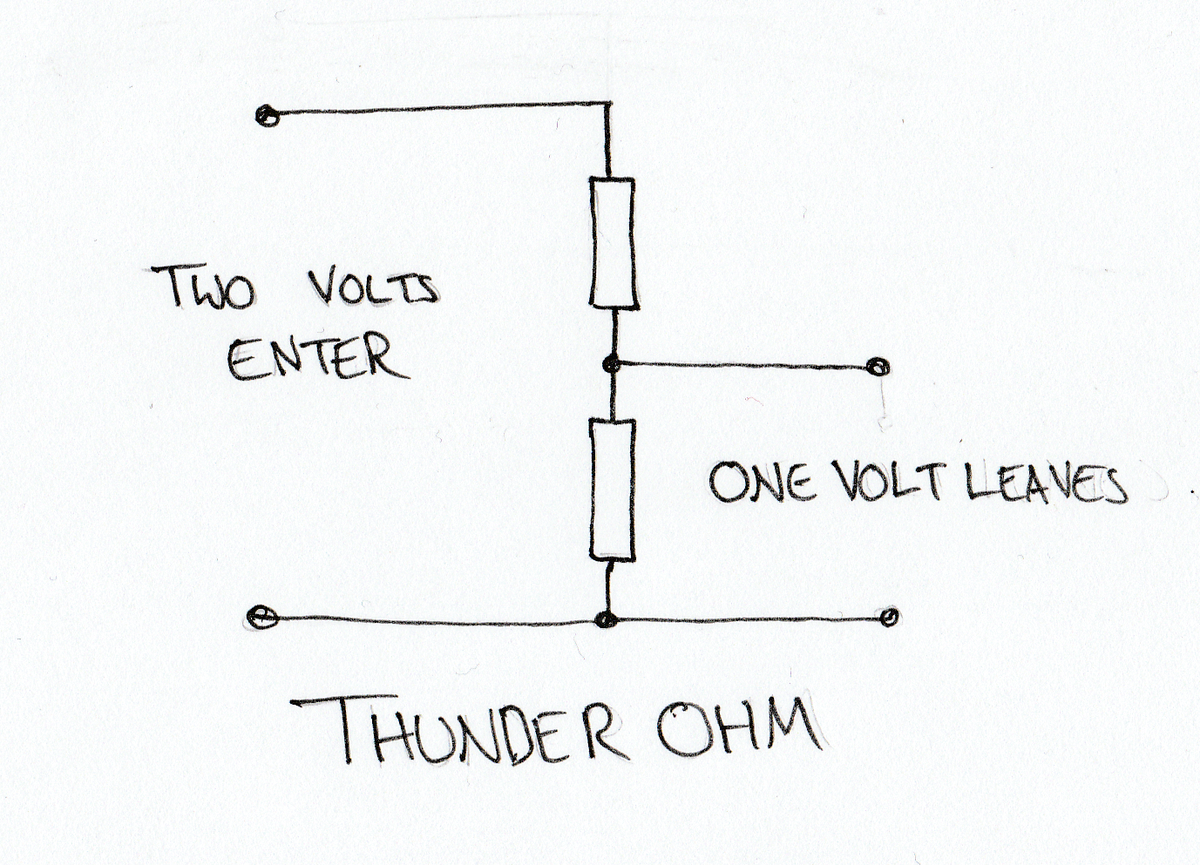 TWO VOLTS
ENTER
ONE VOLT LEAVES
THUNDER OHM